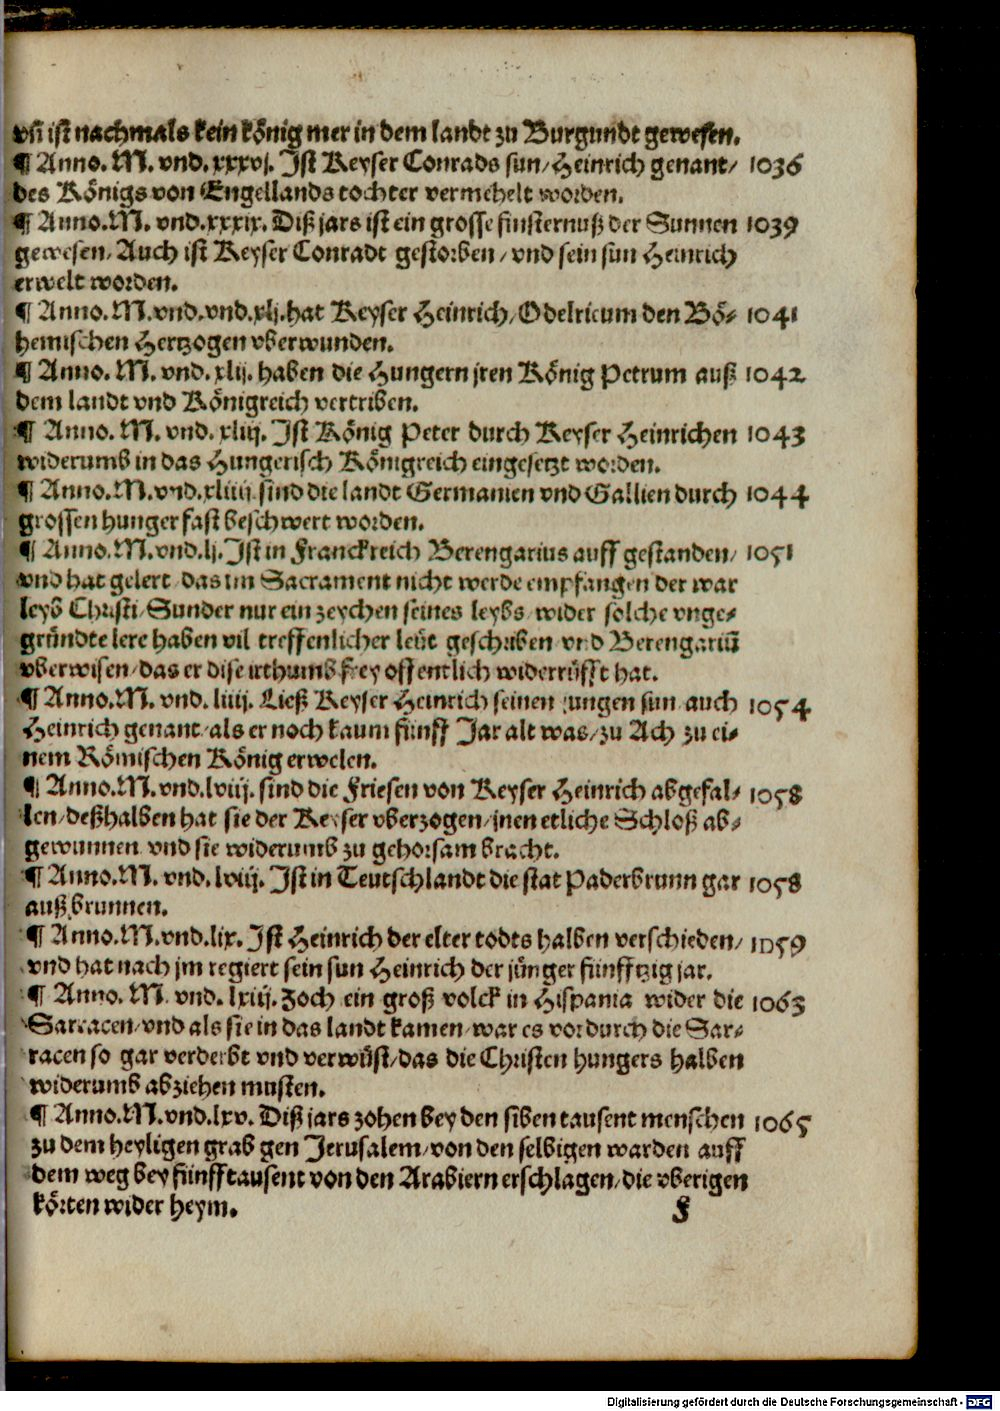 vñ ist nachmals kein könig mer in dem landt zu Burgundt gewesen.
¶ Anno. M. vnd. xxxvj. Jst Keyser Conrads sun/ Heinrich genant/ 1036
des Königs von Engellands tochter vermehelt worden.
¶ Anno. M. vnd. xxxix. Diß jars ist ein grosse finsternuß der Sunnen 1039
gewesen/ Auch ist Keyser Conradt gestorben/ vnd sein sun Heinrich
erwelt worden.
¶ Anno. M. vnd. vnd. xlj. hat Keyser Heinrich/ Odelricum den Bö⸗ 1041
hemischen Hertzogen vberwunden.
¶ Anno. M. vnd. xlij. haben die Hungern jren König Petrum auß 1042
dem landt vnd Königreich vertriben.
¶ Anno. M. vnd. xliij. Jst König Peter durch Keyser Heinrichen 1043
widerumb in das Hungerisch Königreich eingesetzt worden.
¶ Anno. M. vnd. xliiij. sind die landt Germanien vnd Gallien durch 1044
grossen hunger fast beschwert worden.
¶ Anno. M. vnd. lj. Jst in Franckreich Berengarius auff gestanden/ 1051
vnd hat gelert das im Sacrament nicht werde empfangen der war
leyb Christi/ Sunder nur ein zeychen seines leybs/ wider solche vnge⸗
gründte lere haben vil treffenlicher leüt geschriben vnd Berengariū
vberwisen/ das er dise irthumb frey offentlich widerrüfft hat.
¶ Anno. M. vnd. liiij. Ließ Keyser Heinrich seinen jungen sun auch 1054
Heinrich genant/ als er noch kaum fünff Jar alt was/ zu Ach zu ei⸗
nem Römischen König erwelen.
¶ Anno. M. vnd. lviij. sind die Friesen von Keyser Heinrich abgefal⸗ 1058
len/ deßhalben hat sie der Keyser vberzogen/ jnen etliche Schloß ab⸗
gewunnen vnd sie widerumb zu gehorsam bracht.
¶ Anno. M. vnd. lviij. Jst in Teutschlandt die stat Paderbrunn gar 1058
außbrunnen.
¶ Anno. M. vnd. lix. Jst Heinrich der elter todts halben verschieden/ 1059
vnd hat nach jm regiert sein sun Heinrich der jünger fünfftzig jar.
¶ Anno. M. vnd. lxiij. Zoch ein groß volck in Hispania wider die 1063
Sarracen/ vnd als sie in das landt kamen/ war es vor durch die Sar⸗
racen so gar verderbt vnd verwüst/ das die Christen hungers halben
widerumb abziehen musten.
¶ Anno. M. vnd. lxv. Diß jars zohen bey den siben tausent menschen 1065
zu dem heyligen grab gen Jerusalem/ von den selbigen warden auff
dem weg bey fünfftausent von den Arabiern erschlagen/ die vberigen
körten wider heym.
F
Digitalisierung gefördert durch die Deutsche Forschungsgemeinschaft - DFG